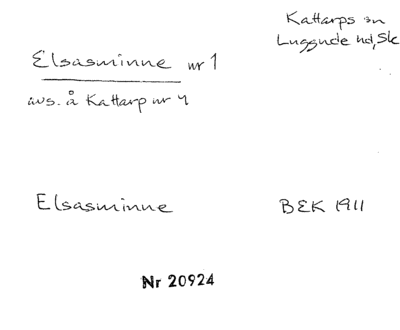 Kattarps sn
Luggude hd, Sk
Elsasminne nr 1
avs. å Kattarp nr 4
Elsasminne
BEK 1911
Nr 20924